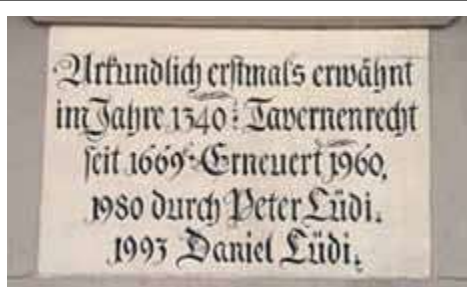 Urkundlich erstmals erwähnt
im Jahre 1340: Tavernenrecht
seit 1669. Erneuert 1960,
1980 durch Peter Lüdi.
1993 Daniel Lüdi.